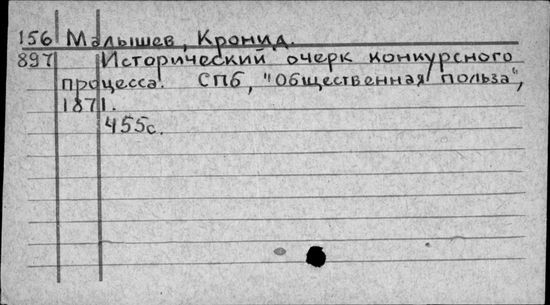 156 Малышев, Кронид.
897 Исторический очерк конкурсного
процесса. СПб, "Общественная польза",
1871.
455с.